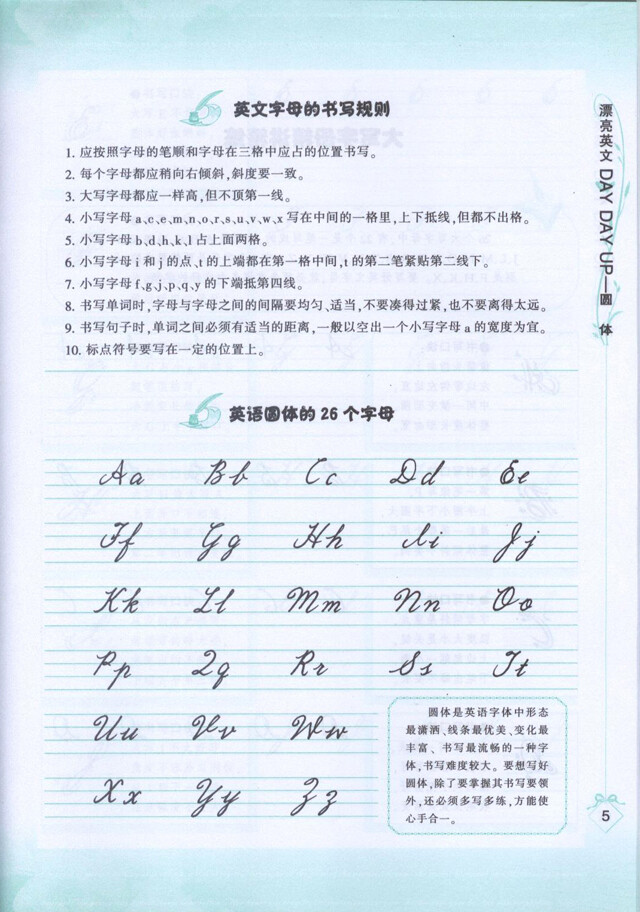 英文字母的书写规则
1. 应按照字母的笔顺和字母在三格中应占的位置书写。
2. 每个字母都应稍向右倾斜,斜度要一致。
3. 大写字母都应一样高,但不顶第一线。
4. 小写字母 a、c、e、m、n、o、r、s、u、v、w、x 写在中间的一格里,上下抵线,但都不出格。
5. 小写字母 b、d、h、k、l 占上面两格。
6. 小写字母 i 和 j 的点、t 的上端都在第一格中间,t 的第二笔紧贴第二线下。
7. 小写字母 f、g、j、p、q、y 的下端抵第四线。
8. 书写单词时,字母与字母之间的间隔要均匀、适当,不要凑得过紧,也不要离得太远。
9. 书写句子时,单词之间必须有适当的距离,一般以空出一个小写字母 a 的宽度为宜。
10. 标点符号要写在一定的位置上。
英语圆体的 26 个字母
Aa Bb Cc Dd Ee
Ff Gg Hh Ii Jj
Kk Ll Mm Nn Oo
Pp Qq Rr Ss Tt
Uu Vv Ww
Xx Yy Zz
圆体是英语字体中形态
最潇洒、线条最优美、变化最
丰富、书写最流畅的一种字
体,书写难度较大。要想写好
圆体,除了要掌握其书写要领
外,还必须多写多练,方能使
心手合一。
漂亮英文 DAY DAY UP—圆 体
5